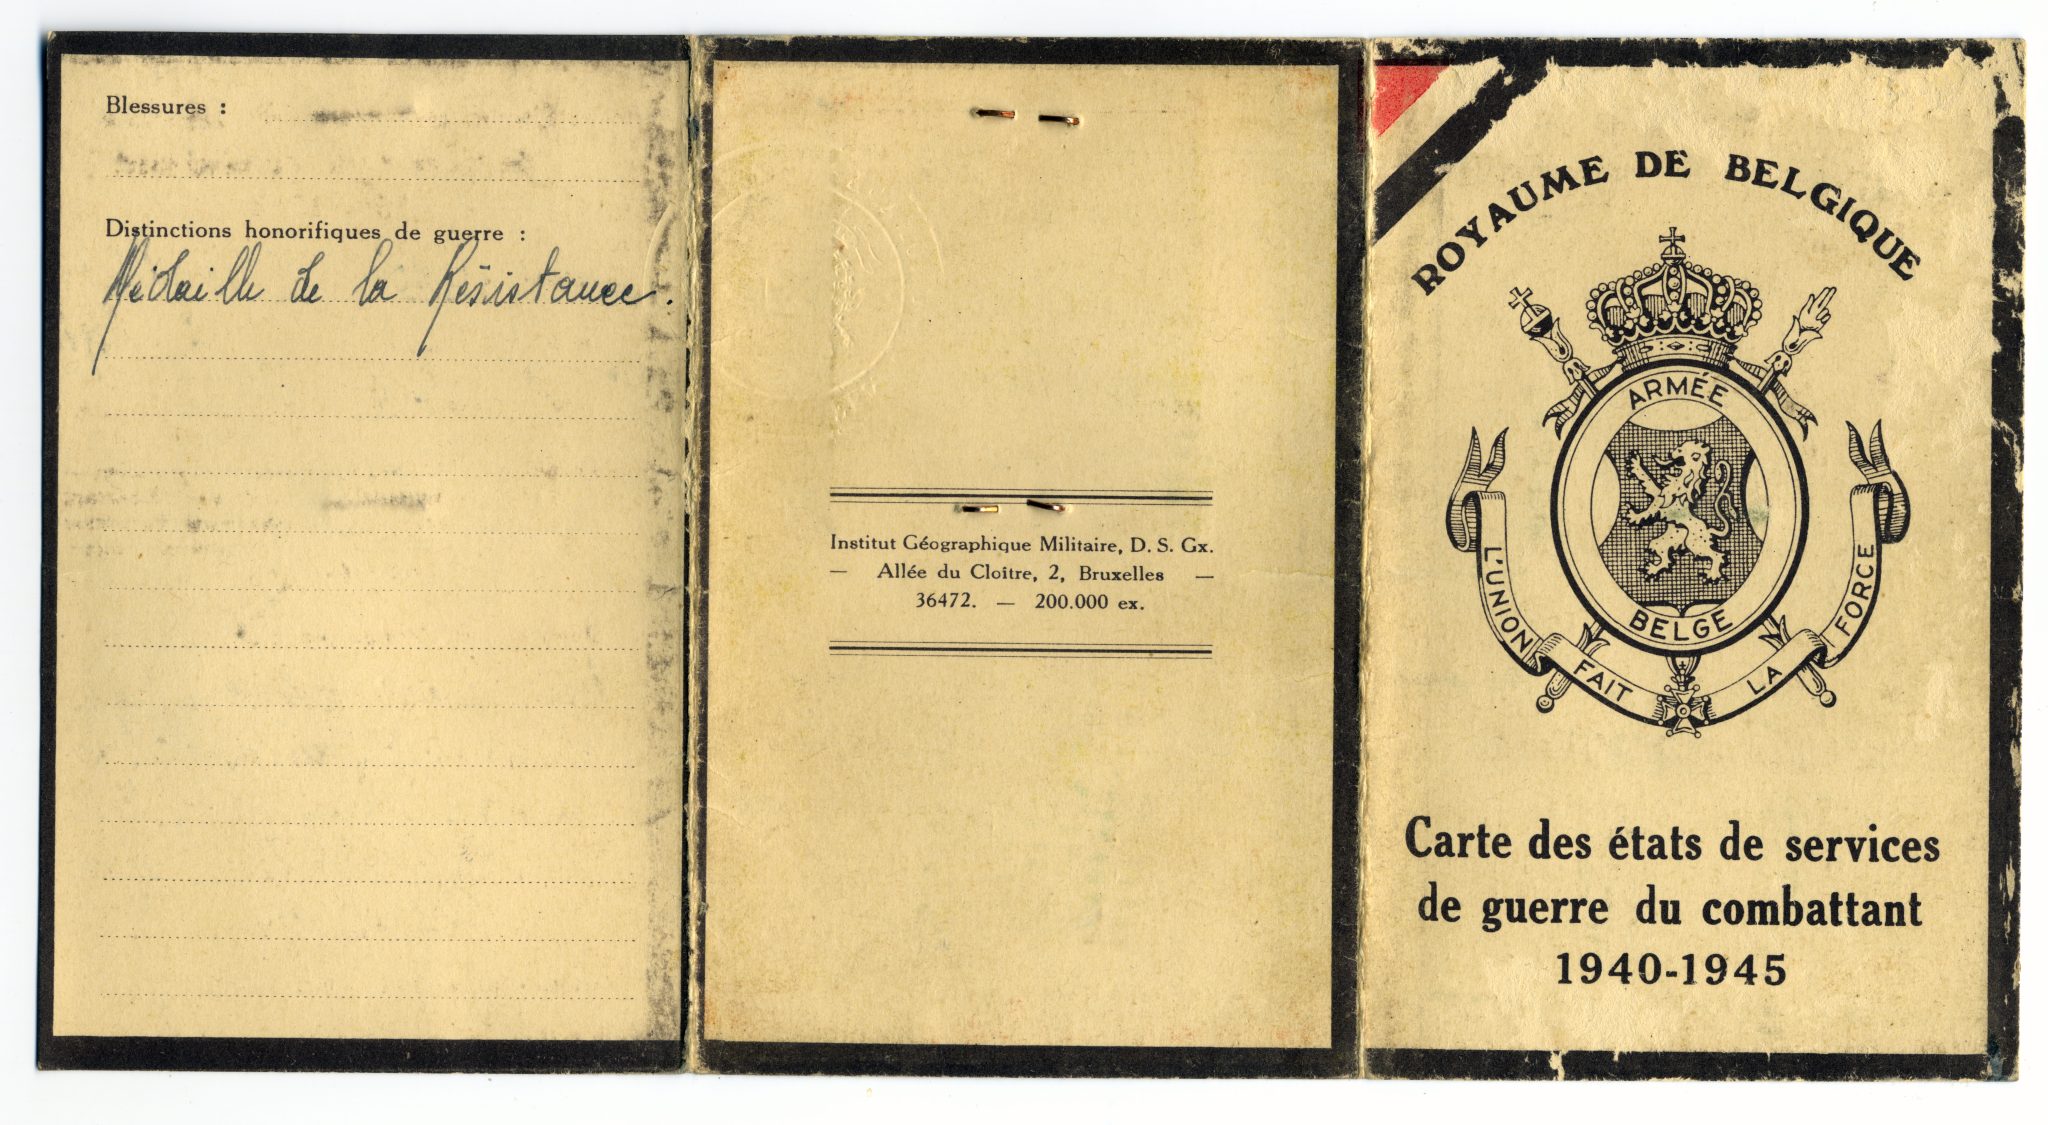 Blessures :
Distinctions honorifiques de guerre :
Médaille de la Résistance.
Institut Géographique Militaire, D. S. Gx.
— Allée du Cloître, 2, Bruxelles —
36472. — 200.000 ex.
ROYAUME DE BELGIQUE
ARMÉE
BELGE
L'UNION FAIT LA FORCE
Carte des états de services
de guerre du combattant
1940-1945